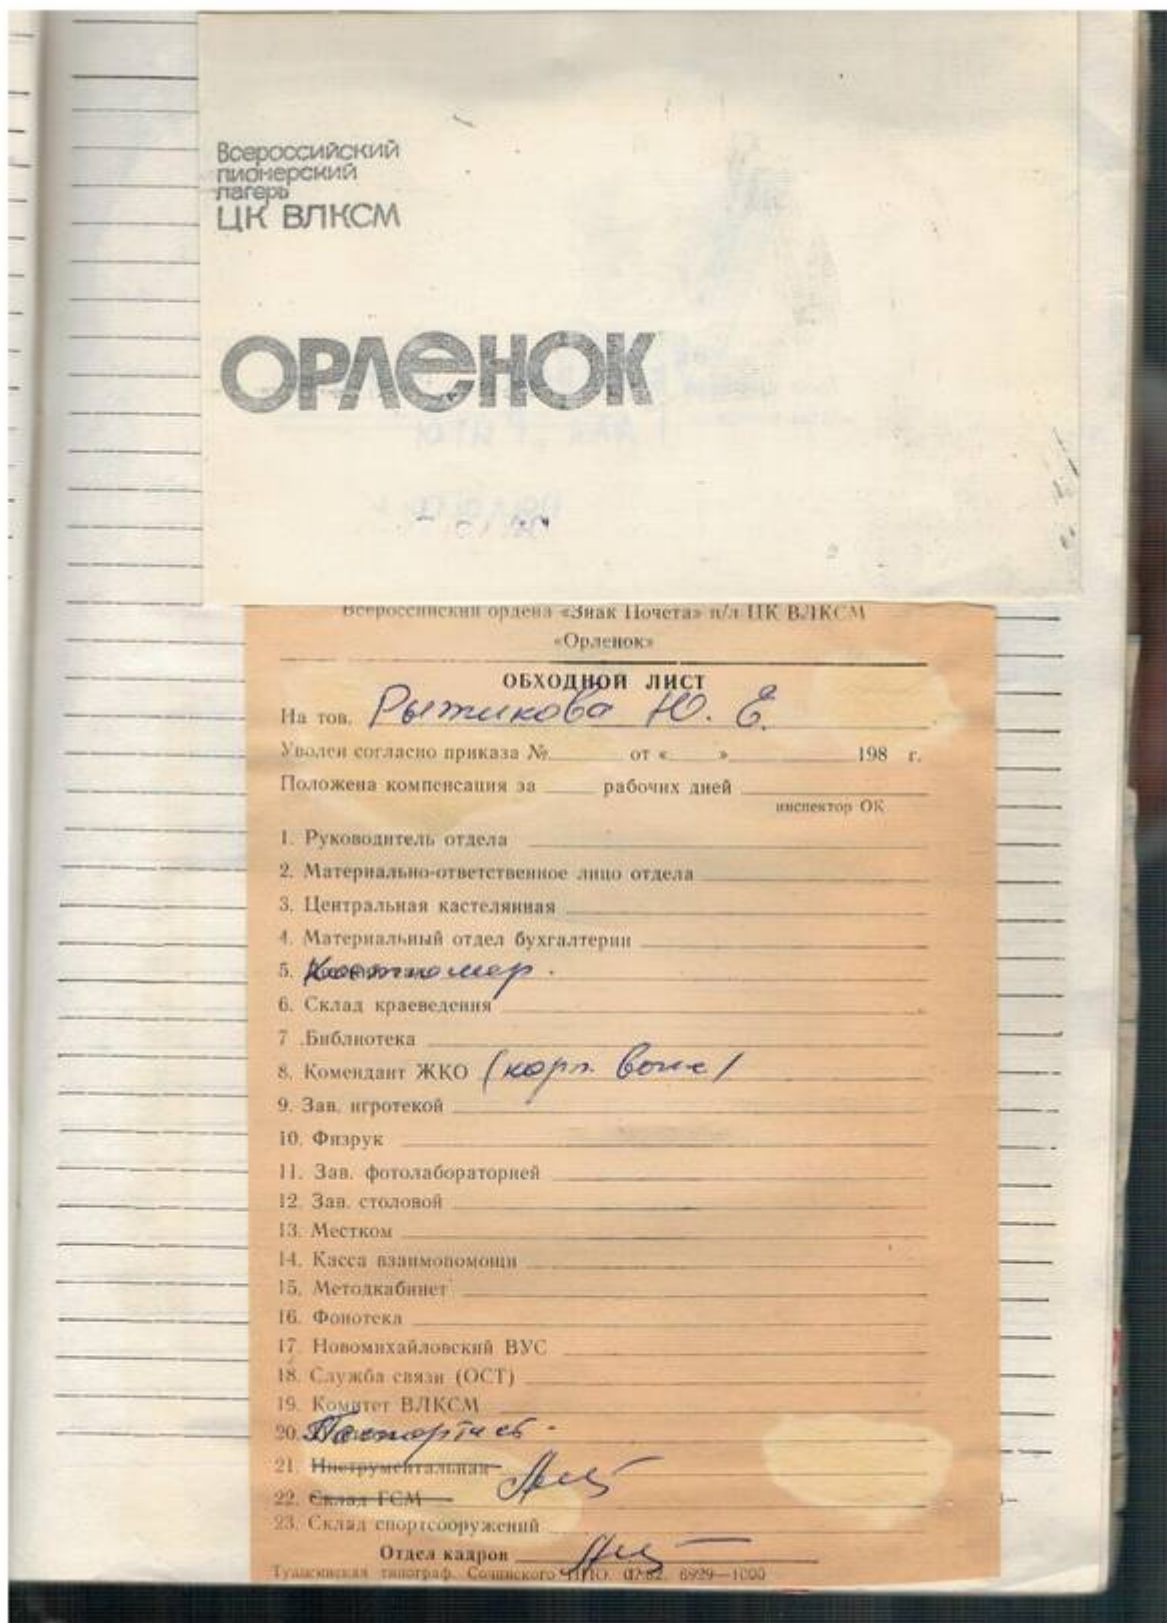 Всероссийский
пионерский
лагерь
ЦК ВЛКСМ
ОРЛЕНОК
Всероссийский ордена «Знак Почета» п/л ЦК ВЛКСМ
«Орленок»
ОБХОДНОЙ ЛИСТ
На тов. Рыжикова Ю. Е.
Уволен согласно приказа № от « » 198 г.
Положена компенсация за рабочих дней
инспектор ОК
1. Руководитель отдела
2. Материально-ответственное лицо отдела
3. Центральная кастелянная
4. Материальный отдел бухгалтерии
5. Костюмер.
6. Склад краеведения
7 .Библиотека
8. Комендант ЖКО (корп. вож/
9. Зав. игротекой
10. Физрук
11. Зав. фотолабораторией
12. Зав. столовой
13. Местком
14. Касса взаимопомощи
15. Методкабинет
16. Фонотека
17. Новомихайловский ВУС
18. Служба связи (ОСТ)
19. Комитет ВЛКСМ
20. Паспортист
21. Инструментальная
22. Склад ГСМ
23. Склад спортсооружений
Отдел кадров
типограф. Сочинского 6929—1000